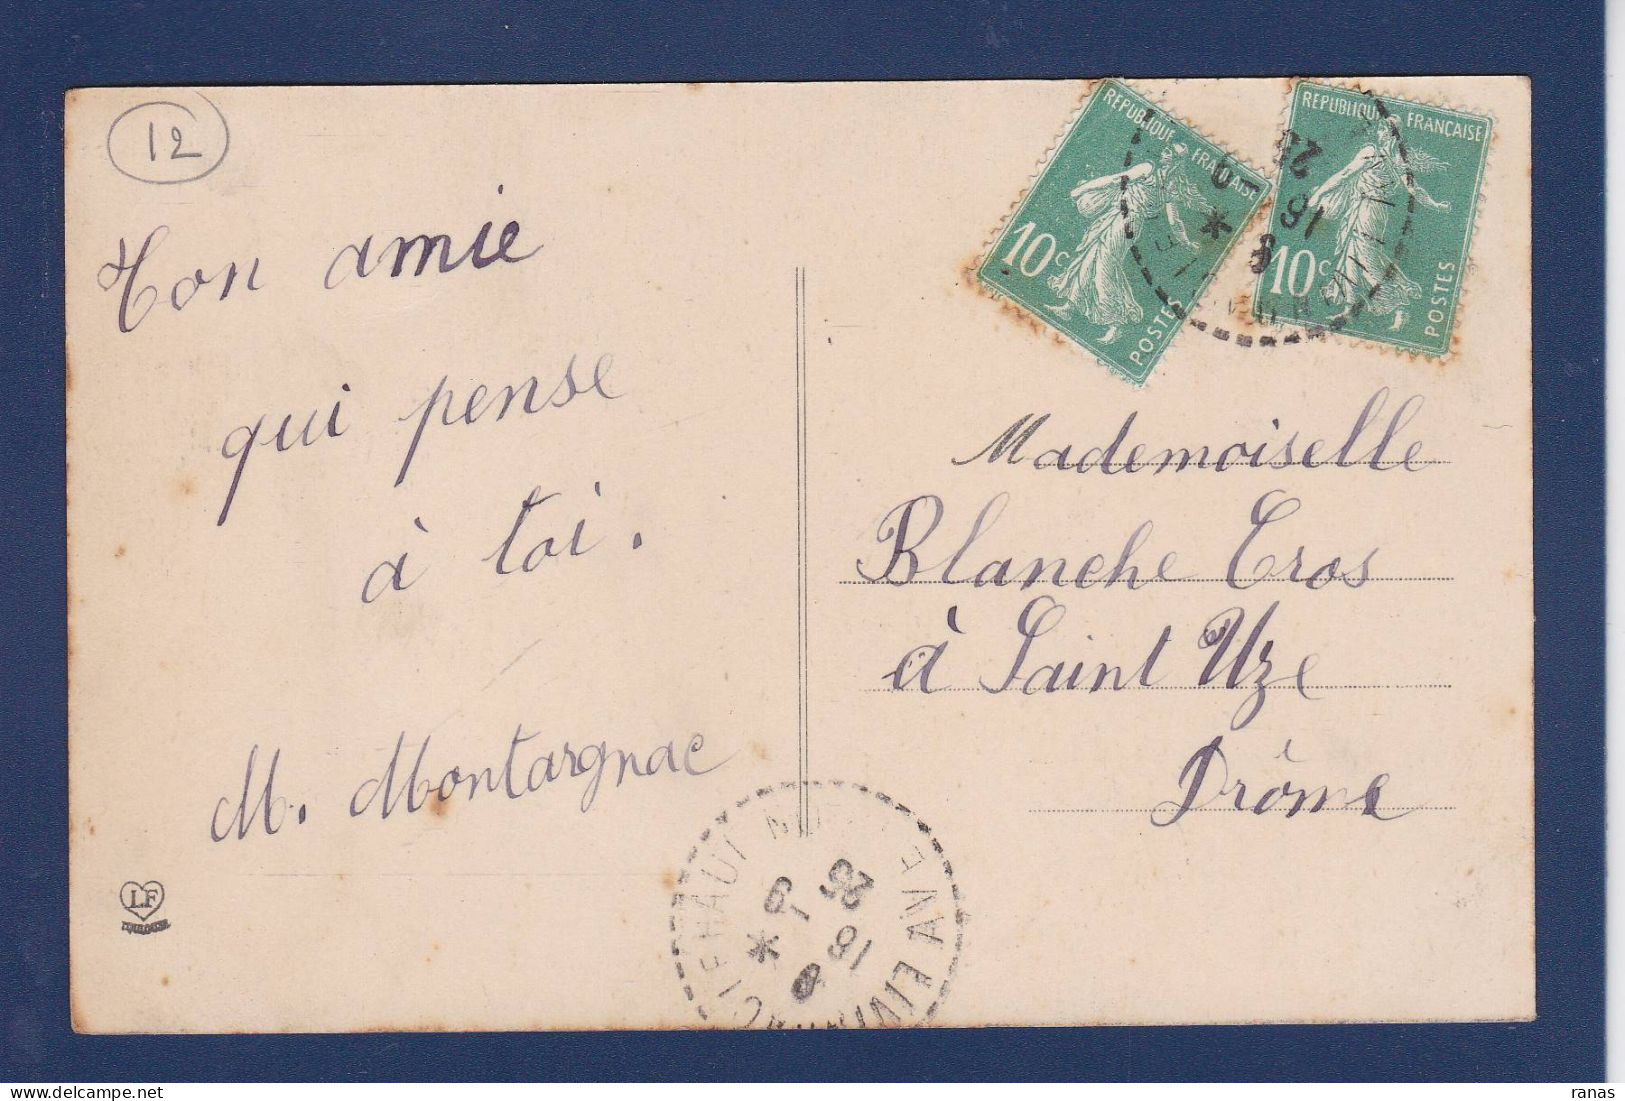 12
Ton amie
qui pense
à toi.
M. Montargnac
LF
REPUBLIQUE FRANCAISE
10c
POSTES
REPUBLIQUE FRANÇAISE
10c
POSTES
Mademoiselle
Blanche Cros
à Saint Uze
Drôme
ranas